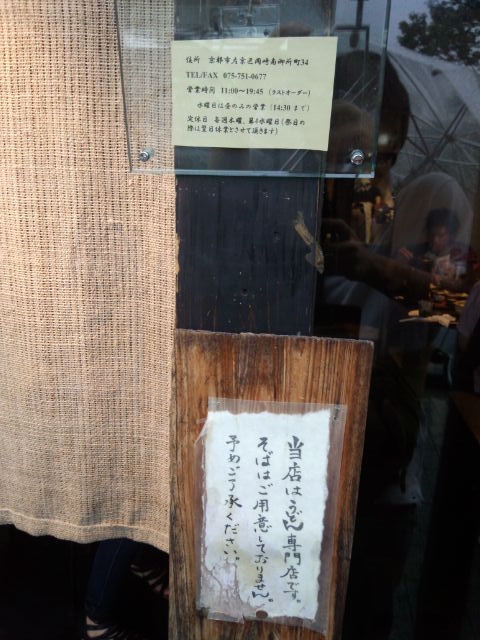 住所 京都市左京区岡崎南御所町34
TEL/FAX 075-751-0677
営業時間 11:00～19:45 (ラストオーダー)
水曜日は昼のみの営業 (14:30まで)
定休日 毎週木曜、第4水曜日(祭日の
際は翌日休業とさせて頂きます)
当店はうどん専門店です。
そばはご用意しておりません。
予めご了承ください。